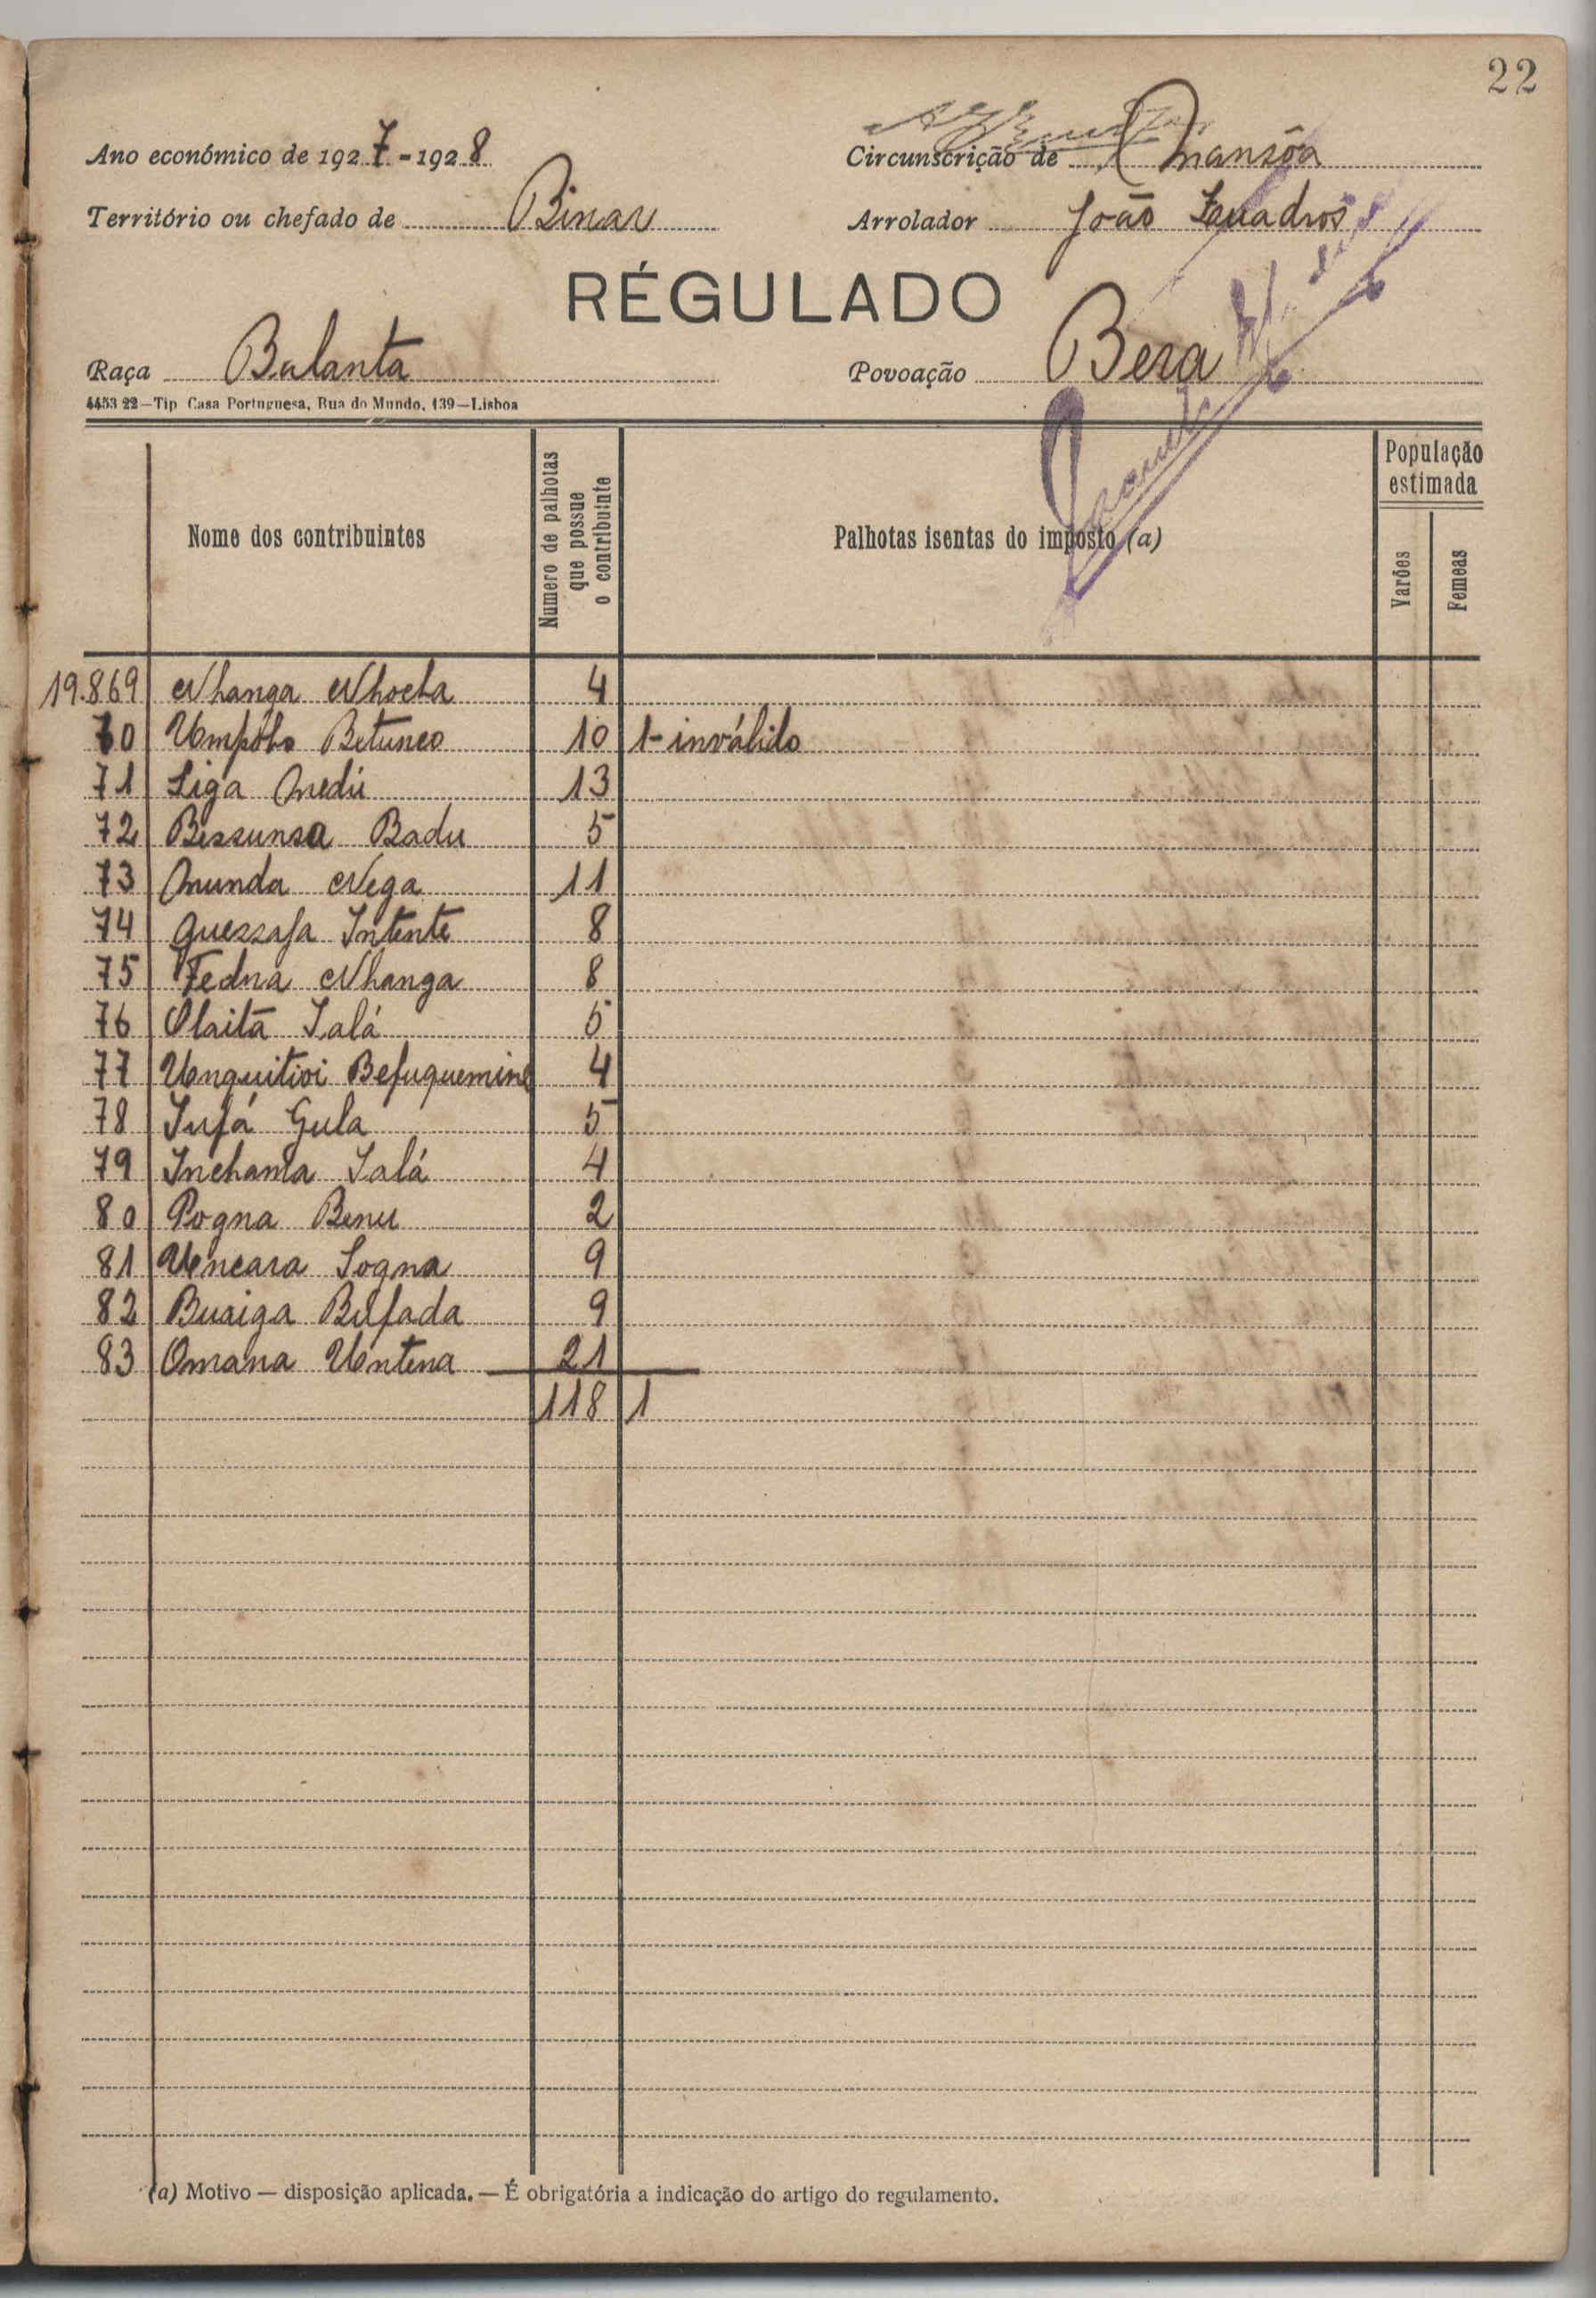 22
Ano económico de 1927-1928
Circunscrição de Mansôa
Território ou chefado de Binar
Arrolador João Quadros
RÉGULADO
Raça Balanta
Povoação Bera
4453 22—Tip Casa Portuguesa, Rua do Mundo, 139—Lisboa
Nome dos contribuintes
Numero de palhotas que possue o contribuinte
Palhotas isentas do imposto (a)
População estimada
Varões
Femeas
19.869 Nhanga Nhocha 4
70 Umpoho Betunco 10 1-inválido
71 Siga Medú 13
72 Bessunsa Badu 5
73 Munda Nega 11
74 Quessafa Intente 8
75 Fedna Nhanga 8
76 Olaitã Ialá 5
77 Unquitioi Befuquemine 4
78 Iufá Gula 5
79 Inchama Ialá 4
80 Pogna Benu 2
81 Uncara Sogna 9
82 Buaiga Belfada 9
83 Omana Untena 21
118 1
(a) Motivo — disposição aplicada. — É obrigatória a indicação do artigo do regulamento.